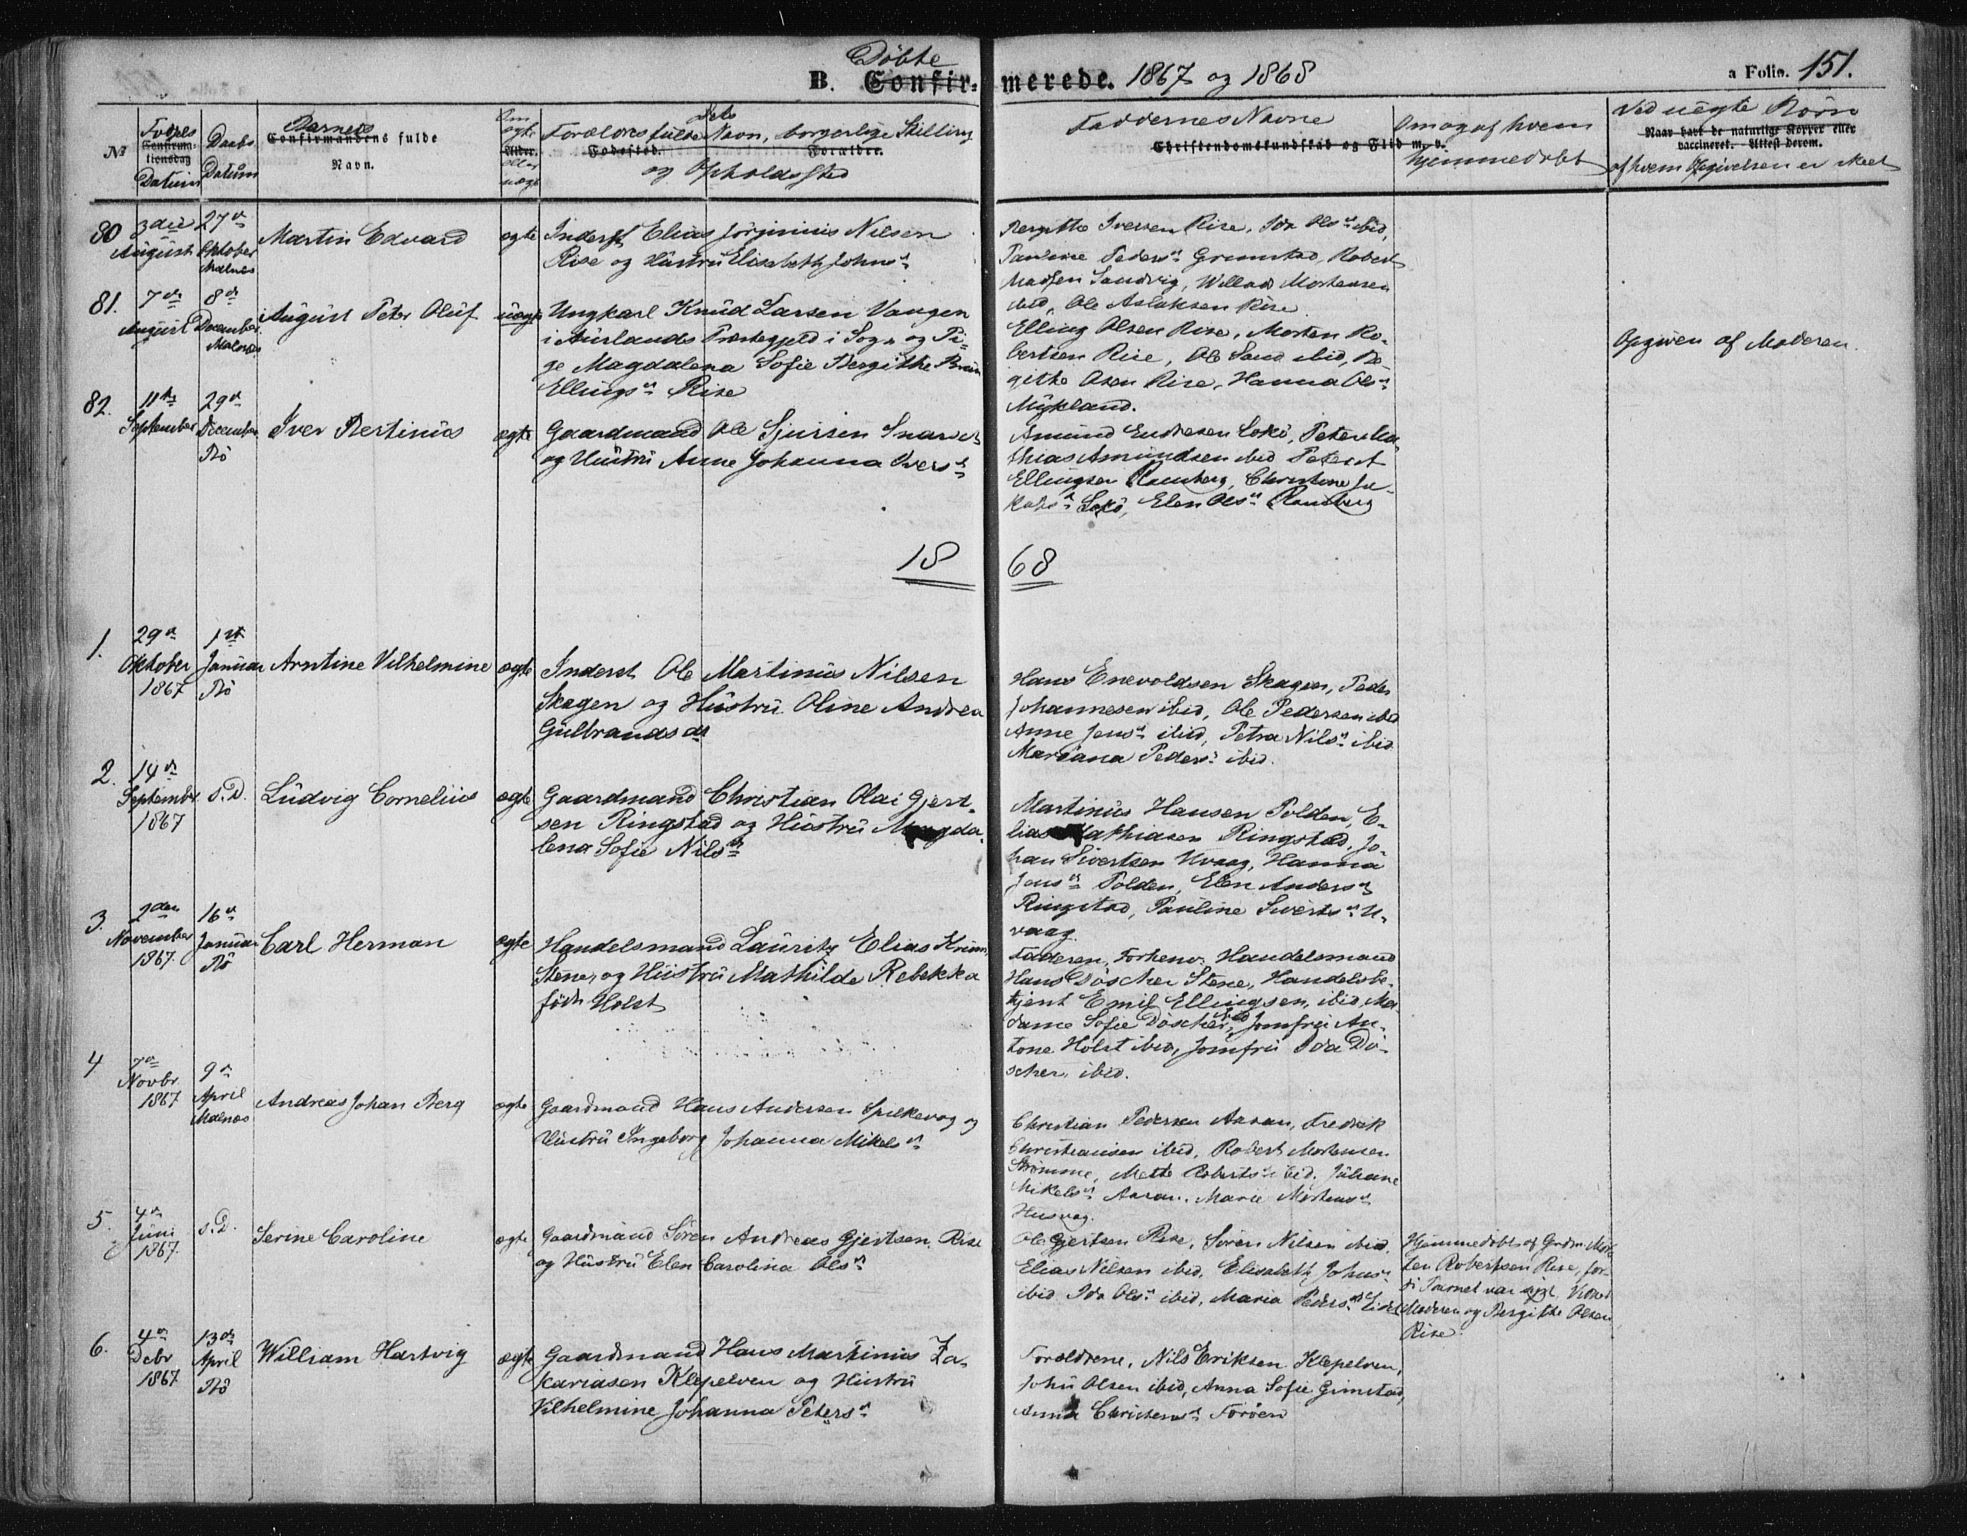 Döbte
B. Confirmerede. 1867 og 1868
a Folio. 151.
№
Födsels Datum
Confirmationsdag
Daabs Datum
Barnets
Confirmandens fulde Navn.
Om ægte eller uægte
Alder.
Forældres fulde Navn, borgerlige Stilling
og Opholdssted
Fødested.
Forældre.
Faddernes Navne
Christendomskundskab og Flid m. v.
Om og af hvem
hjemmedöbt
Ved uægte Börn
Naar havt de naturlige Kopper eller
vaccineret. Attest derom.
af hvem Opgivelsen er skeet
80
3die August
27de Oktober Malnes
Martin Edvard
ægte
Inderst Elias Jörginius Nilsen
Rise og Hustru Elisabeth Johnsd
Bergitte Iversen Rise, Ida Olsd ibid,
Pauline Pedersd Grimstad, Robert
Madsen Sandvig, Willads Mortensen
ibid, Ole Aslaksen Rise
81.
7de August
8de December Malnes
August Peter Oluf
uægte
Ungkarl Knud Larsen Vangen
i Aurlands Præstegjeld i Sogn og Pi-
ge Magdalena Sofie Bergithe
Ellingsd Rise
Elling Olsen Rise, Morten Ro-
bertsen Rise, Ole Sand ibid, Be-
gitte Olsen Rise, Hanna Olsd
Mykland.
Opgiven af Moderen.
82.
11te September
29de December Bö
Iver Bertinus
ægte
Gaardmand Ole Sjursen Snarset
og Hustru Anne Johanna Iversd
Amund Endresen Lokö, Peter Ma-
thias Amundsen ibid Peter
Ellingsen Ramberg, Christine Ja-
kobsd Lokö, Elen Olsd Ramberg
18 68
1.
29de Oktober 1867
1ste Januar Bö
Arntine Vilhelmine
ægte
Inderst Ole Martinus Nilsen
Skagen og Hustru Oline Andrea
Gulbrandsdr
Hans Enevoldsen Skagen, Peder
Johannesen ibid, Ole Pedersen ibid
Anne Jensd ibid, Petra Nilsd ibid
Mariana Pedersd ibid.
2.
14de September 1867
s. D.
Ludvig Cornelius
ægte
Gaardmand Christian Olai Gjert-
sen Ringstad og Hustru Magda-
lena Sofie Nilsd
Martinus Hansen Polden, E-
lias Mathiasen Ringstad, Jo-
han Sivertsen Uvaag, Hanna
Jensd Polden, Elen Andersd
Ringstad, Pauline Sivertsd U-
vaag.
3.
2den November 1867
16de Januar Bö
Carl Herman
ægte
Handelsmand Lauritz Elias
Stene, og Hustru Mathilde Rebekka
födt Holst
Faderen, Forhenv. Handelsmand
Hans Döscher Stene, Handelsbe-
tjent Emil Ellingsen, ibid, Ma-
dame Sofie Döscher, ibid Jomfru An-
tone Holst ibid, Jomfru Ida Dö-
scher, ibid.
4
7de Novbr 1867
9de April Malnes
Andreas Johan Berg
ægte
Gaardmand Hans Andersen Spilkevog og
Hustru Ingeborg Johanna Mikelsd
Christian Pedersen Aasan, Fredrik
Christiansen ibid, Robert Mortensen
Strömme, Mette Robertsd ibid, Juliane
Mikelsd Aasan, Marie Mortensd
Husvag.
5.
4de Juni 1867
s. D.
Serine Caroline
ægte
Gaardmand Sören Andreas Gjertsen, Rise
og Hustru Elen Carolina Olsd
Ole Gjertsen Rise, Sören Nilsen ibid,
Elias Nilsen ibid, Elisabeth Johnsd
ibid Ida Olsd ibid, Maria Pedersd
Hjemmedöbt af Grdm. Mor-
ten Robertsen Rise, for-
di Barnet var sygt. Vidner
Moderen og Bergitte Olsen
Rise.
6.
4de Debr 1867
13de April Bö
William Hartvig
ægte
Gaardmand Hans Martinus Za-
kariasen Klepelven og Hustru
Vilhelmine Johanna Petersd
Forældrene, Nils Eriksen Klepelven,
John Olsen ibid, Anna Sofie Gimstad,
Anna Christensd Foröen